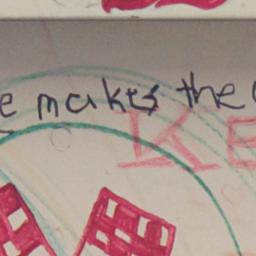 e makes the
KE